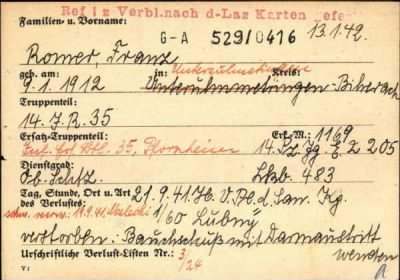 Ref I z Verbl. nach d-Laz Karten
Familien- u. Vorname: G-A 529/0416 13.1.42.
Romer, Franz
geb. am: in: Kreis:
9.1.1912 Biberach
Truppenteil:
14. J.R. 35
Ersatz-Truppenteil: Erk.-M.: 1169
35, Pforzheim 14. 205
Dienstgrad:
Ob. Schtz. 483
Tag, Stunde, Ort u. Art 21.9.41. H. V. Pl. d. San. Kp.
des Verlustes: 19.9.41 1/60 Lubny
verstorben: Bauchschuß mit Darmaustritt
Urschriftliche Verlust-Listen Nr.: 3/24
V1